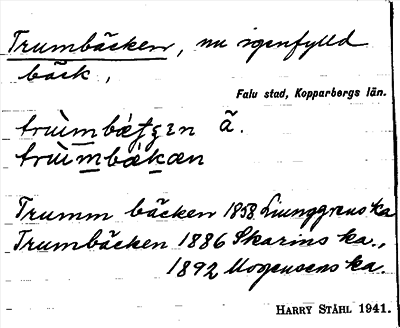 Trumbäcken, nu igenfylld
bäck,
Falu stad, Kopparbergs län.
ã.
trùmbækæn
Trumm bäcken 1858 Ljunggrens ka
Trumbäcken 1886 Skarins ka.,
1892 Mogensens ka.
HARRY STÅHL 1941.